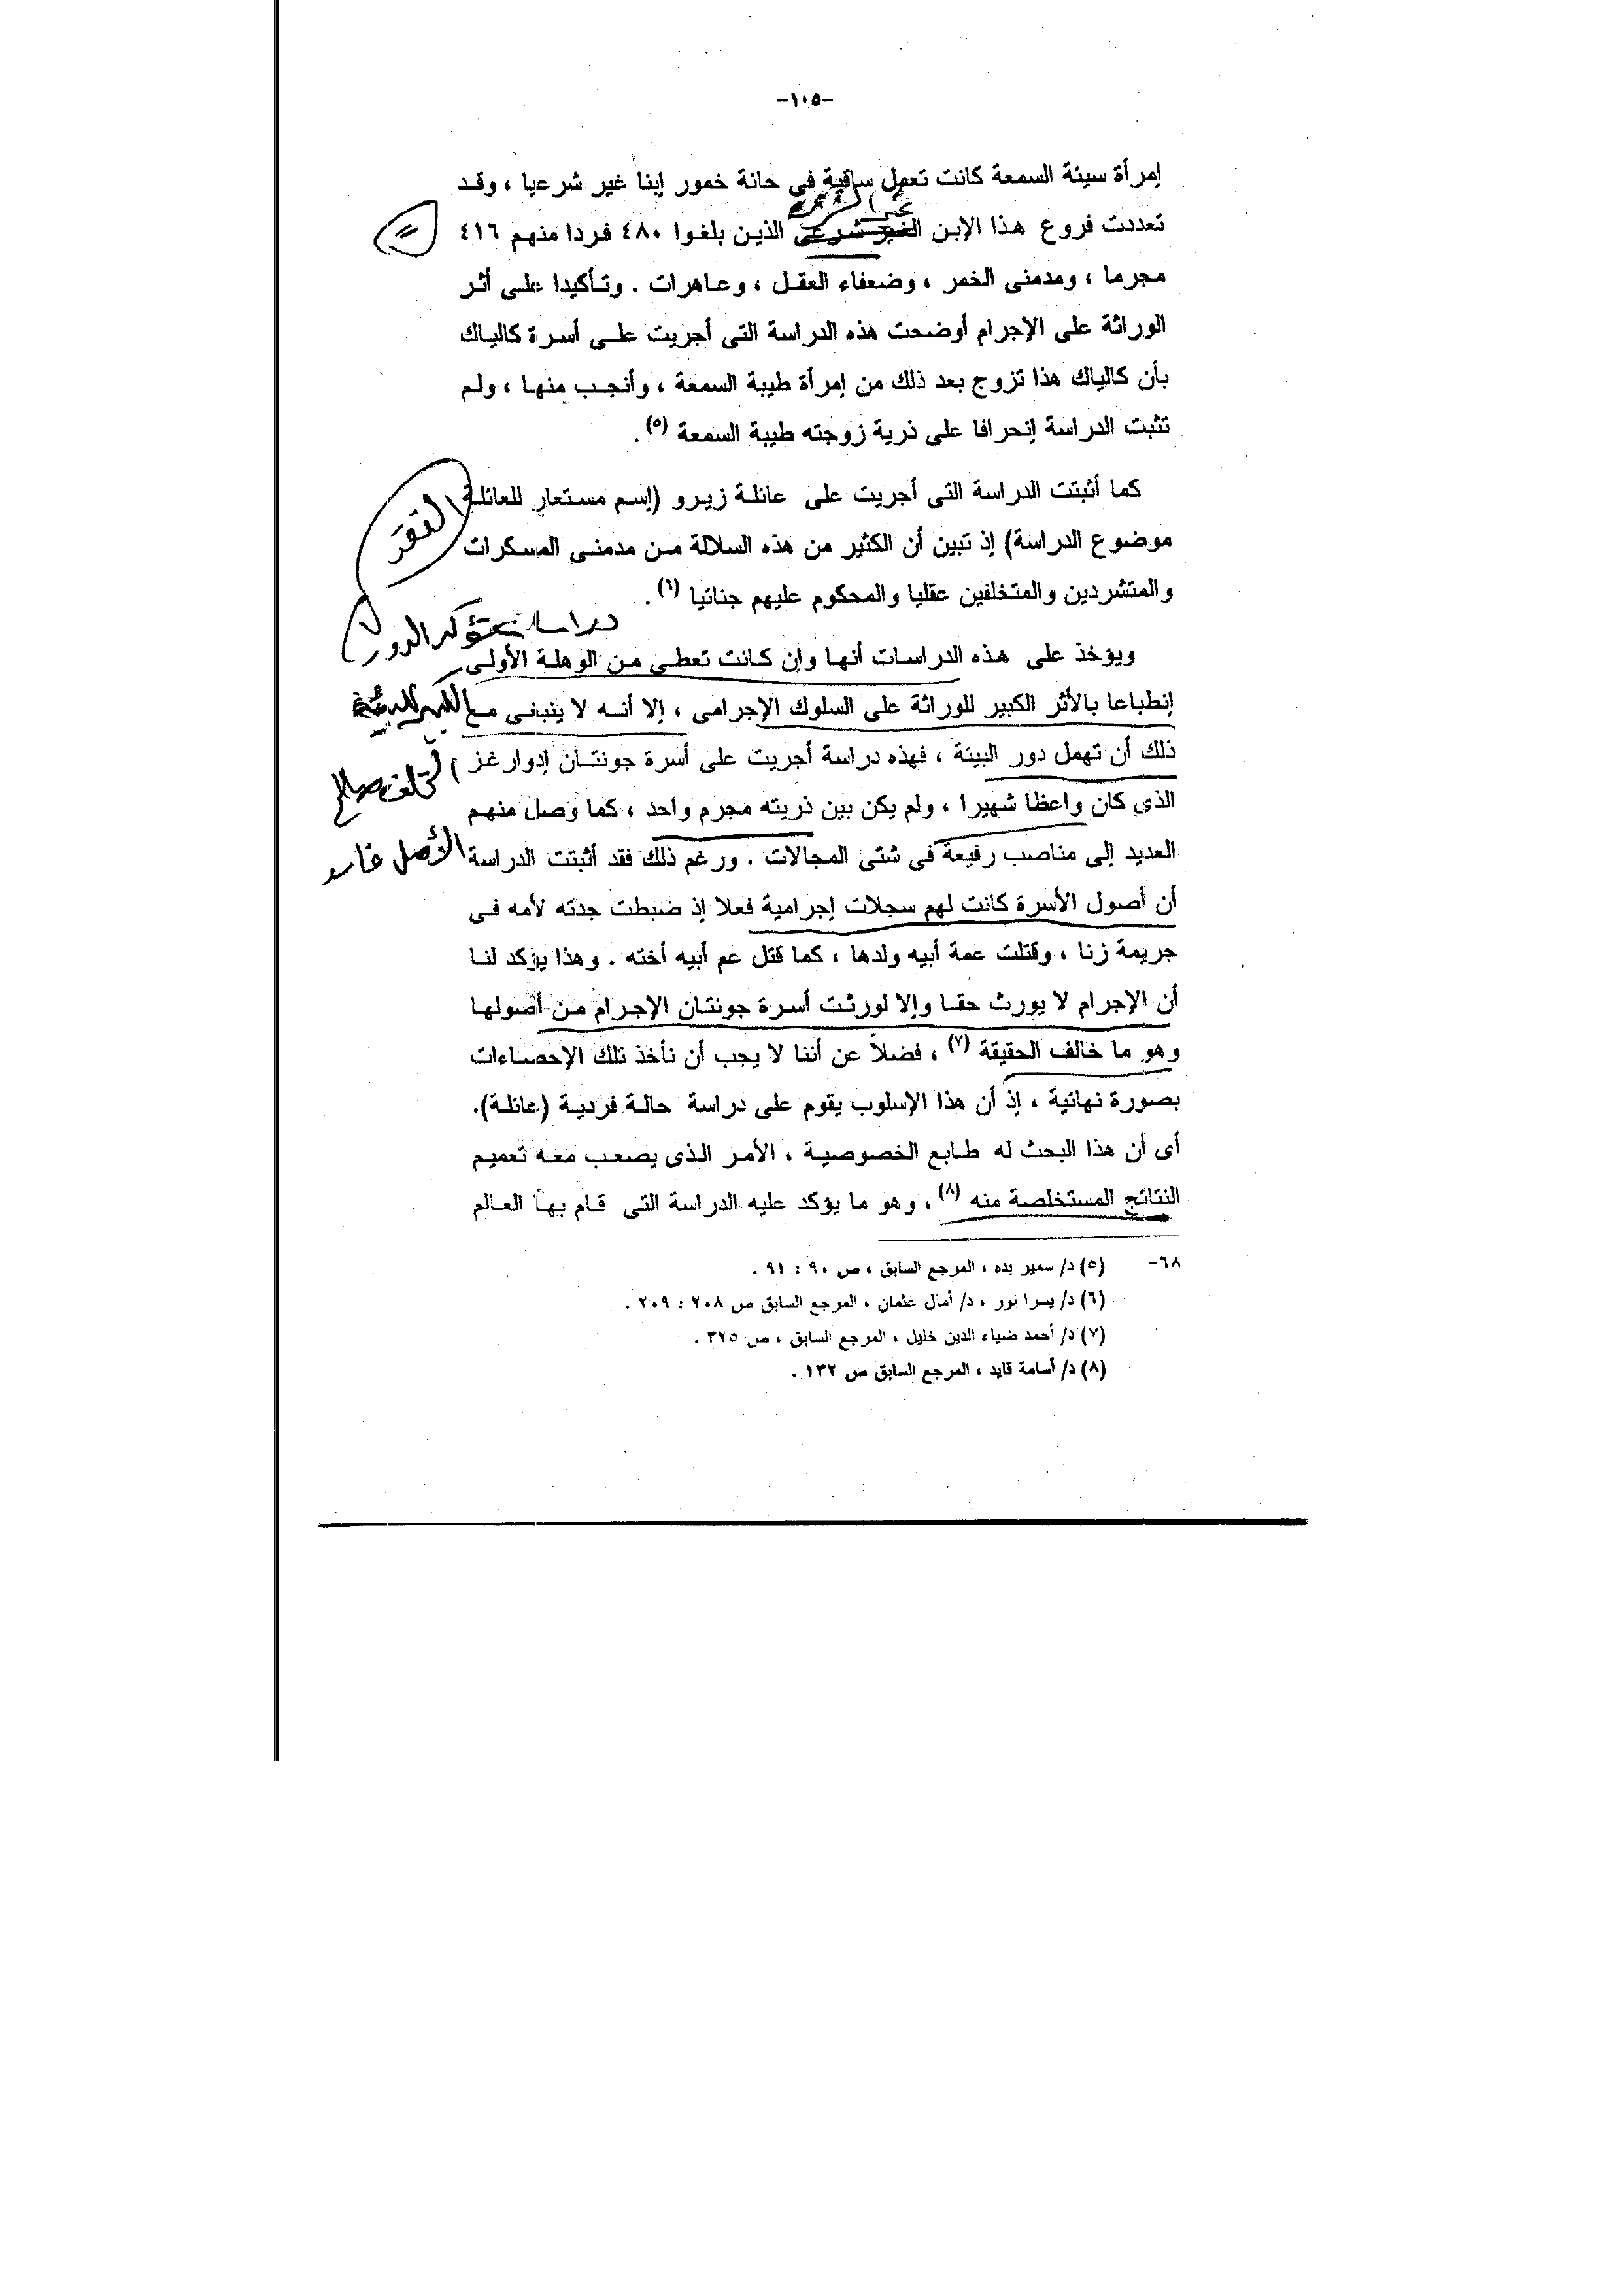 -١٠٥-
إمرأة سيئة السمعة كانت تعمل ساقية فى حانة خمور إبنا غير شرعيا ، وقد
تعددت فروع هذا الإبن الغير شرعى الذين بلغوا ٤٨٠ فردا منهم ٤١٦
مجرما ، ومدمنى الخمر ، وضعفاء العقل ، وعاهرات . وتأكيدا على أثر
الوراثة على الإجرام أوضحت هذه الدراسة التى أجريت على أسرة كالياك
بأن كالياك هذا تزوج بعد ذلك من إمرأة طيبة السمعة ، وأنجب منها ، ولم
تثبت الدراسة إنحرافا على ذرية زوجته طيبة السمعة (٥) .
كما أثبتت الدراسة التى أجريت على عائلة زيرو (إسم مستعار للعائلة
موضوع الدراسة) إذ تبين أن الكثير من هذه السلالة من مدمنى المسكرات
والمتشردين والمتخلفين عقليا والمحكوم عليهم جنائيا (٦) .
النقد
دراسات تؤكد الدور
ويؤخذ على هذه الدراسات أنها وإن كانت تعطى من الوهلة الأولى
إنطباعا بالأثر الكبير للوراثة على السلوك الإجرامى ، إلا أنه لا ينبغى مع
الكبير للبيئة
ذلك أن تهمل دور البيئة ، فهذه دراسة أجريت على أسرة جونتان إدوارغز
صالح
الذى كان واعظا شهيرا ، ولم يكن بين ذريته مجرم واحد ، كما وصل منهم
العديد إلى مناصب رفيعة فى شتى المجالات . ورغم ذلك فقد أثبتت الدراسة
الأصل فاسد
أن أصول الأسرة كانت لهم سجلات إجرامية فعلا إذ ضبطت جدته لأمه فى
جريمة زنا ، وقتلت عمة أبيه ولدها ، كما قتل عم أبيه أخته . وهذا يؤكد لنا
أن الإجرام لا يورث حقا وإلا لورثت أسرة جونتان الإجرام من أصولها
وهو ما خالف الحقيقة (٧) ، فضلاً عن أننا لا يجب أن نأخذ تلك الإحصاءات
بصورة نهائية ، إذ أن هذا الإسلوب يقوم على دراسة حالة فردية (عائلة).
أى أن هذا البحث له طابع الخصوصية ، الأمر الذى يصعب معه تعميم
النتائج المستخلصة منه (٨) ، وهو ما يؤكد عليه الدراسة التى قام بها العالم
٦٨- (٥) د/ سمير بده ، المرجع السابق ، ص ٩٠ : ٩١ .
(٦) د/ يسرا نور ، د/ أمال عثمان ، المرجع السابق ص ٢٠٨ : ٢٠٩ .
(٧) د/ أحمد ضياء الدين خليل ، المرجع السابق ، ص ٣٢٥ .
(٨) د/ أسامة قايد ، المرجع السابق ص ١٣٢ .